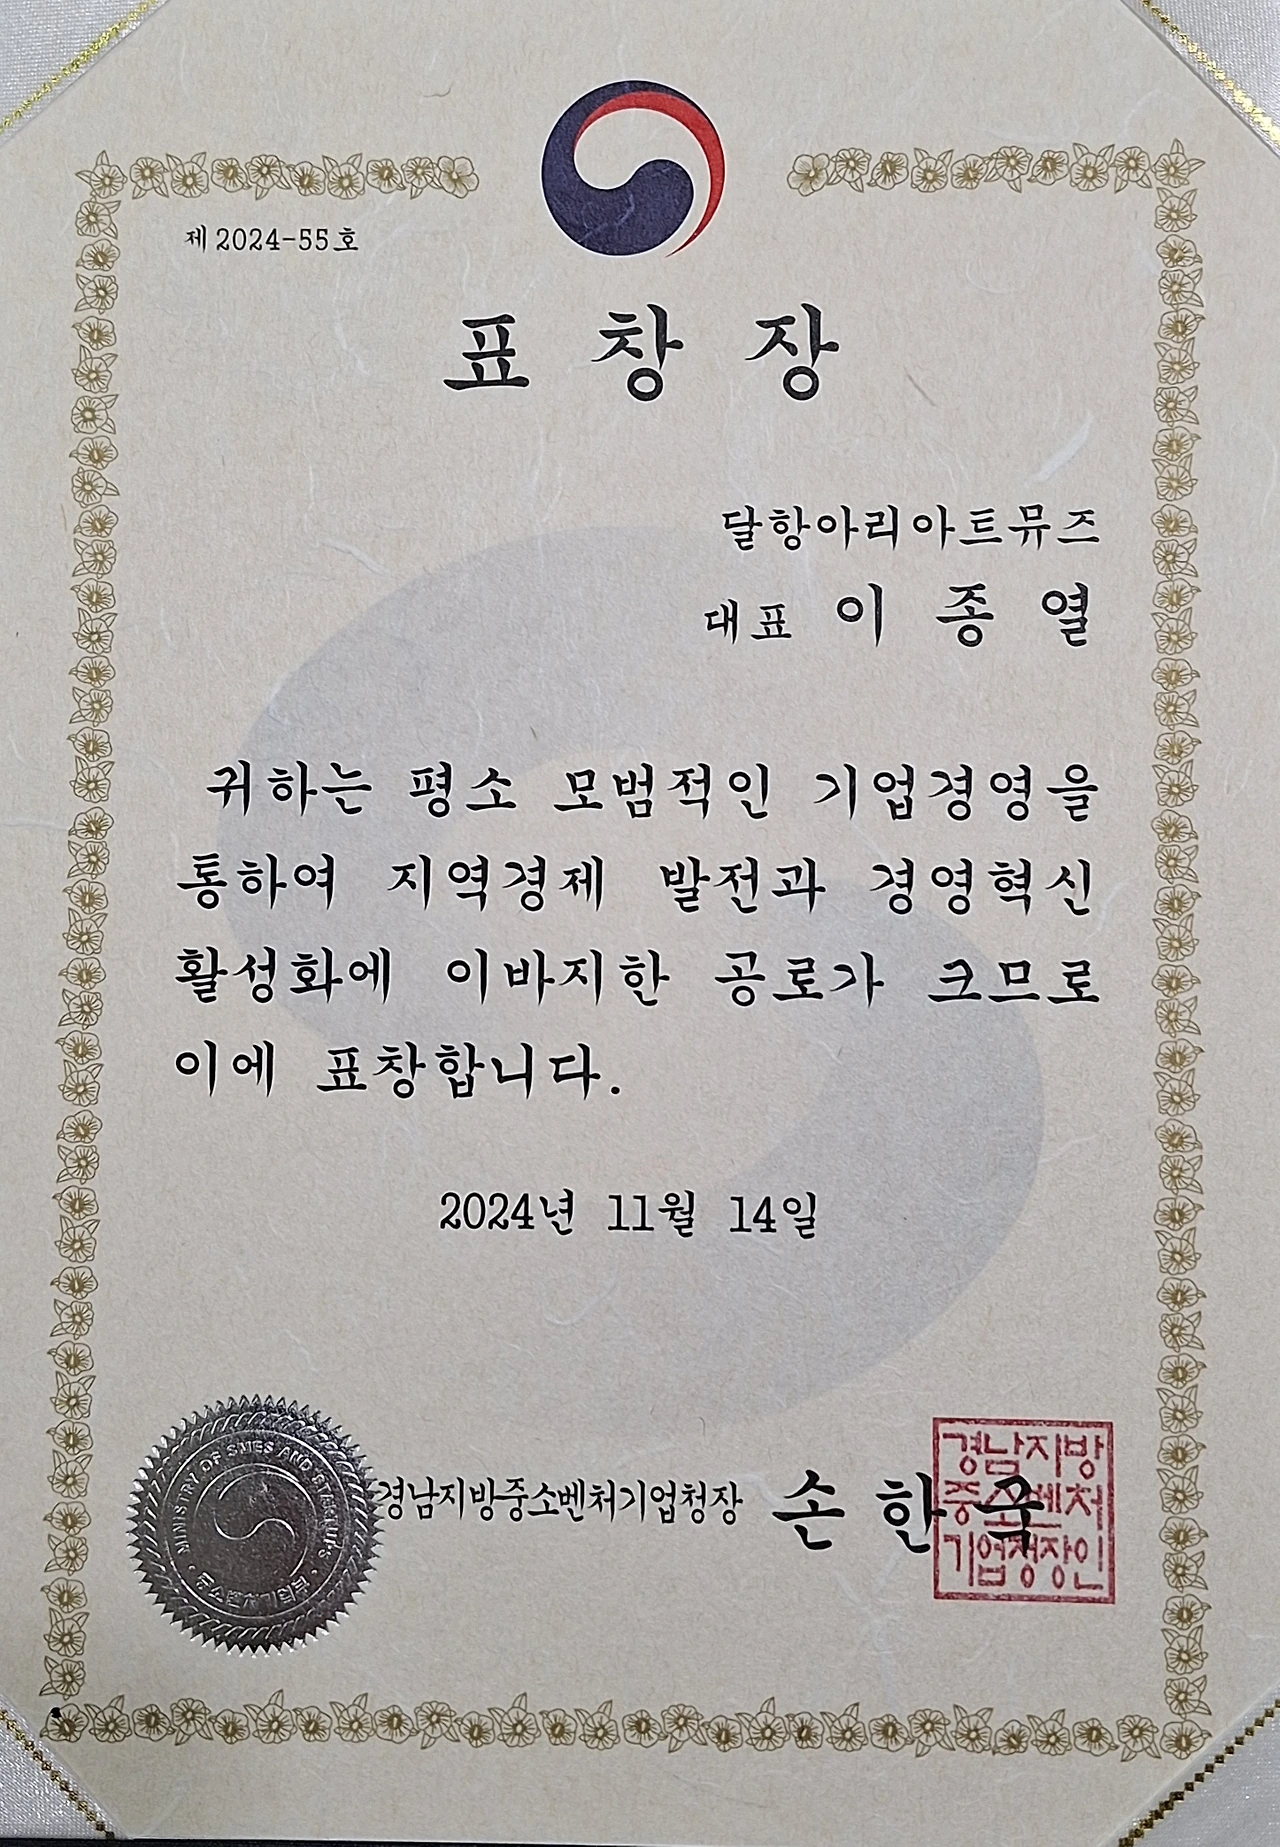 제 2024-55 호
표 창 장
달항아리아트뮤즈
대표 이 종 열
귀하는 평소 모범적인 기업경영을
통하여 지역경제 발전과 경영혁신
활성화에 이바지한 공로가 크므로
이에 표창합니다.
2024년 11월 14일
MINISTRY OF SMES AND STARTUPS
중소벤처기업부
경남지방중소벤처기업청장 손 한 국
경남지방
중소벤처
기업청장인